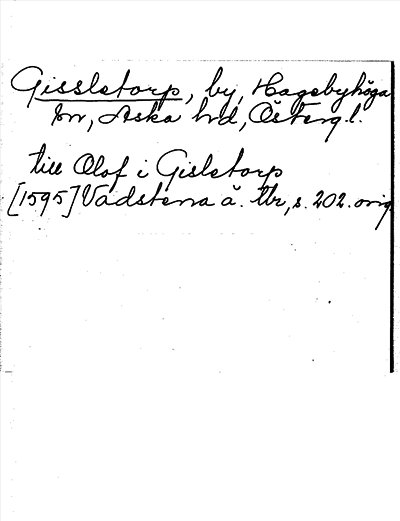 Gissletorp, by, Hagebyhöga
sn, Aska hd, Österg. l.
till Olof i Gisletorp
[1595] Vadstena ä. Tbr, s. 202. orig